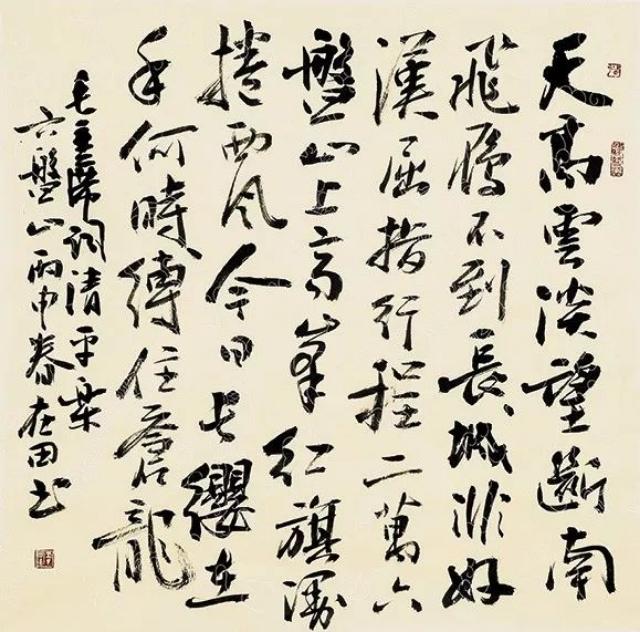 天高雲淡望斷南
飛鴈不到長城非好
漢屈指行程二萬六
盤山上高峯紅旗漫
捲西風今日長纓在
手何時縛住蒼龍
毛主席詞清平樂
六盤山丙申春在田書